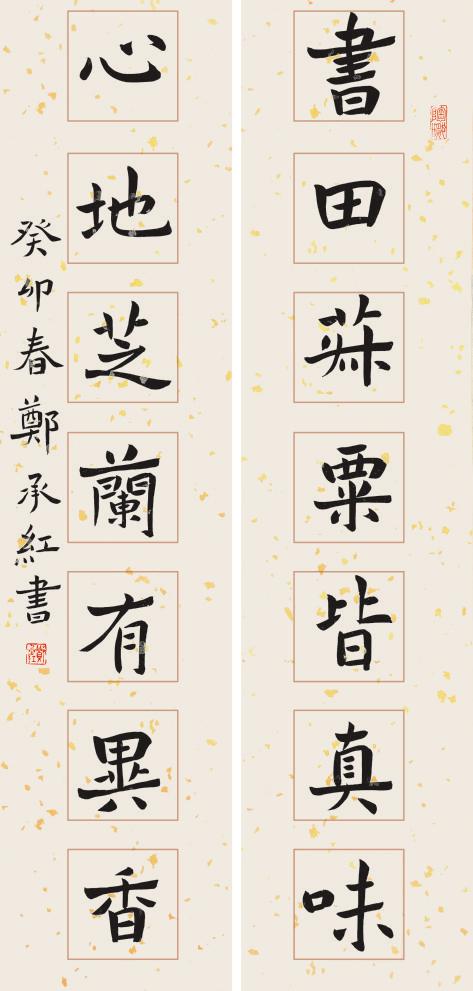 書田菽粟皆真味
心地芝蘭有異香
癸卯春鄭承紅書